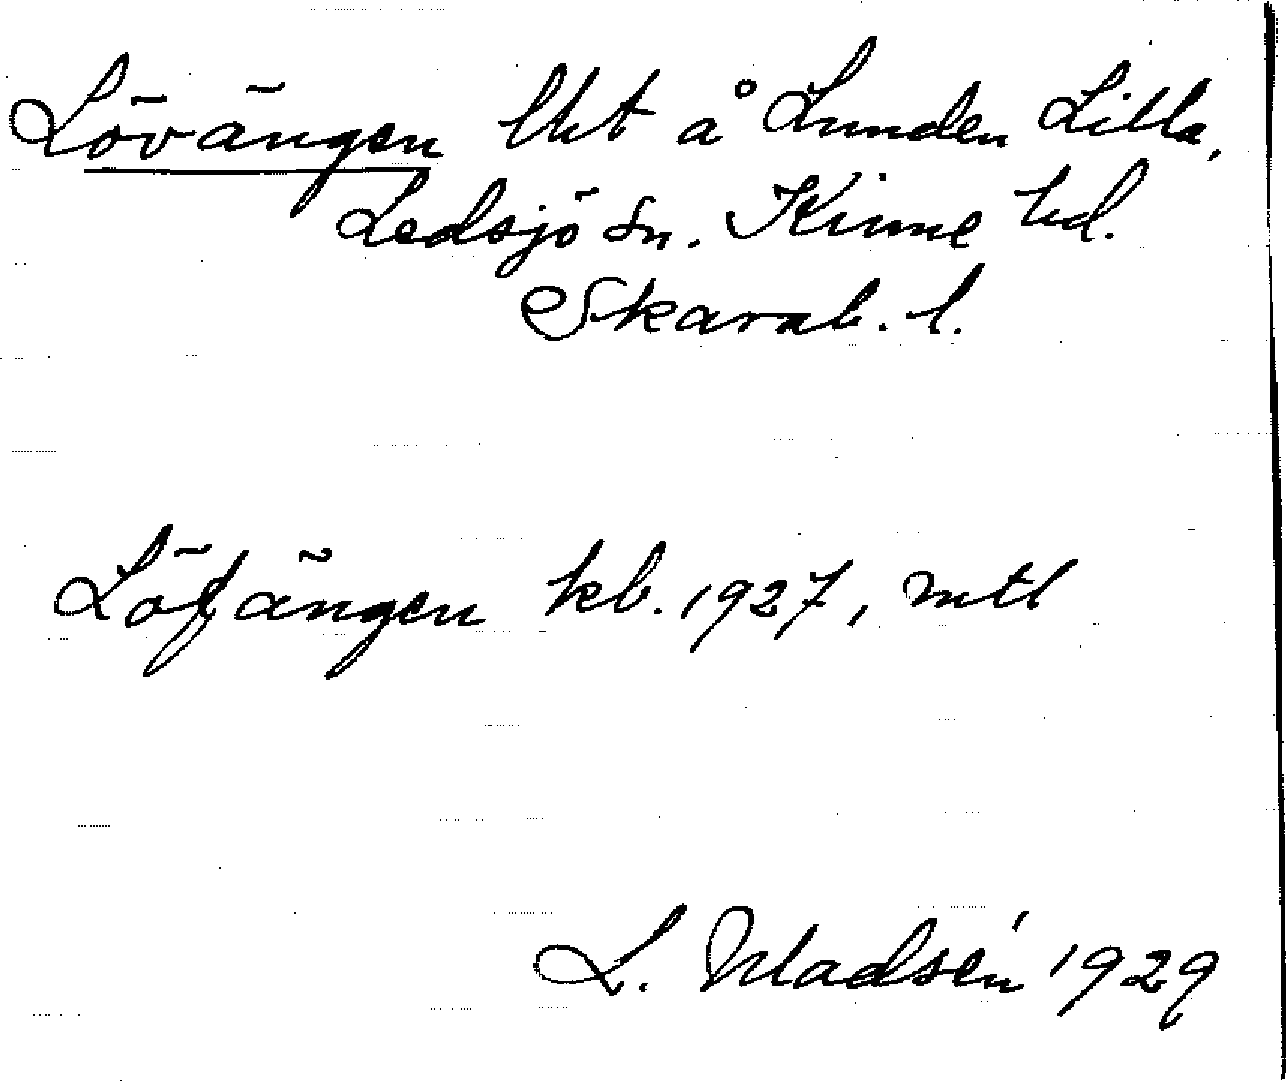 Lövängen lht å Lunden Lilla,
Ledsjö sn. Kinne hd.
Skarab. l.
Löfängen kb. 1927, mtl
L. Madsén 1929